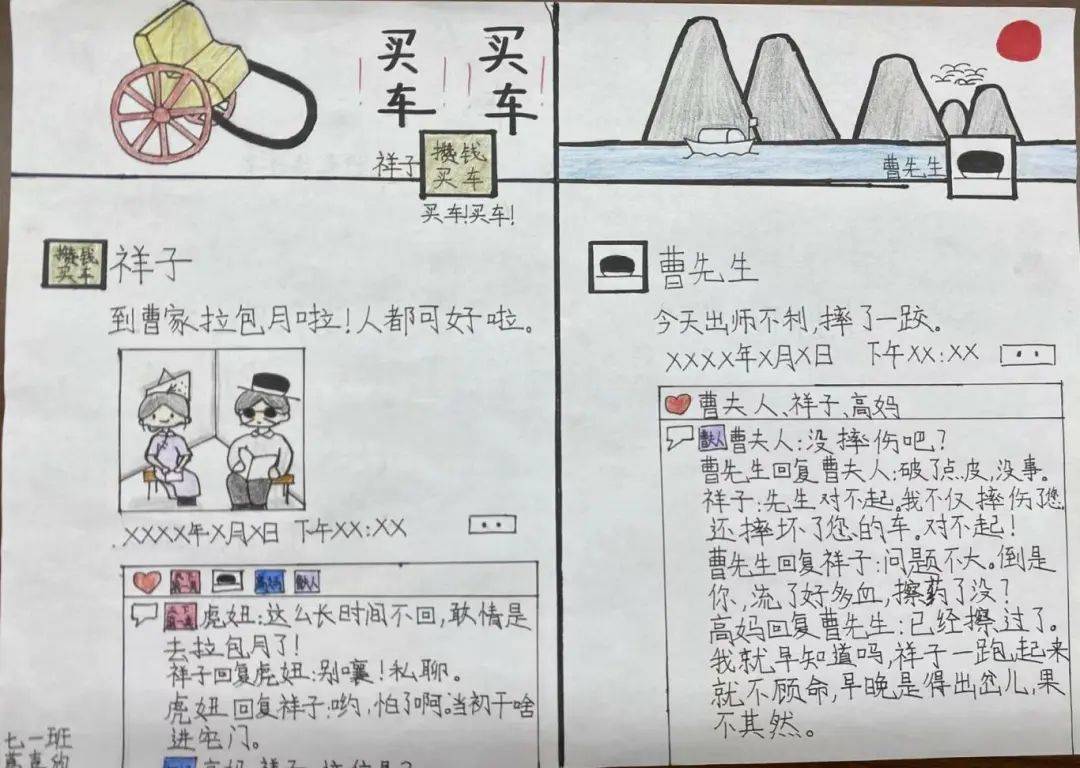 买车
买车
祥子
攒钱
买车
买车!买车!
攒钱
买车
祥子
到曹家拉包月啦!人都可好啦。
XXXX年X月X日 下午XX:XX
高妈
虎妞:这么长时间不回,敢情是
去拉包月了!
祥子回复虎妞:别嚷!私聊。
虎妞回复祥子:哟,怕了啊。当初干啥
进宅门。
七一班
曹先生
曹先生
今天出师不利,摔了一跤。
XXXX年X月X日 下午XX:XX
曹夫人、祥子、高妈
曹夫人:没摔伤吧?
曹先生回复曹夫人:破了点皮,没事。
祥子:先生对不起。我不仅摔伤了您
还摔坏了您的车。对不起!
曹先生回复祥子:问题不大。倒是
你,流了好多血,擦药了没?
高妈回复曹先生:已经擦过了。
我就早知道吗,祥子一跑起来
就不顾命,早晚是得出岔儿,果
不其然。